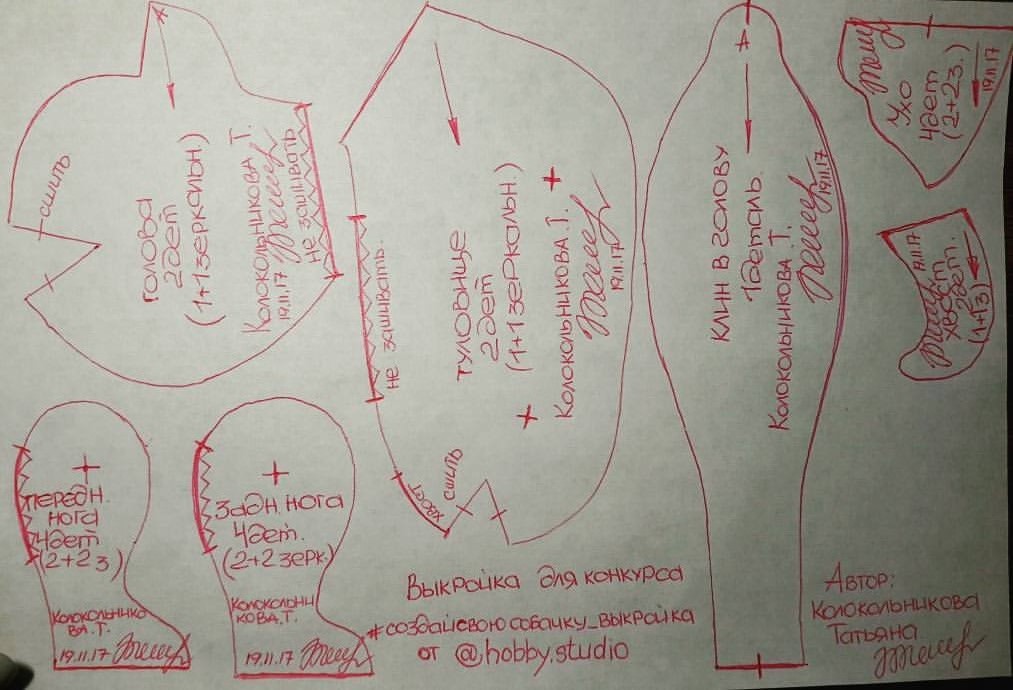 сшить
голова
2дет
(1+1зеркальн)
Колокольникова Т.
19.11.17
не зашивать
не зашивать.
туловище
2дет
(1+1зеркальн.)
Колокольникова.Т.
19.11.17
хвост
сшить
А
клин в голову
1деталь.
Колокольникова.Т.
19.11.17
Ухо
4дет
(2+2з.)
19.11.17
хвост
2дет.
(1+1з)
передн.
нога
4дет
(2+2з)
Колокольнико
ва.Т.
19.11.17
Задн. нога
4дет.
(2+2зерк)
Колокольни
кова.Т.
19.11.17
Выкройка для конкурса
#создайсвоюсобачку_выкройка
от @hobby.studio
Автор:
Колокольникова
Татьяна